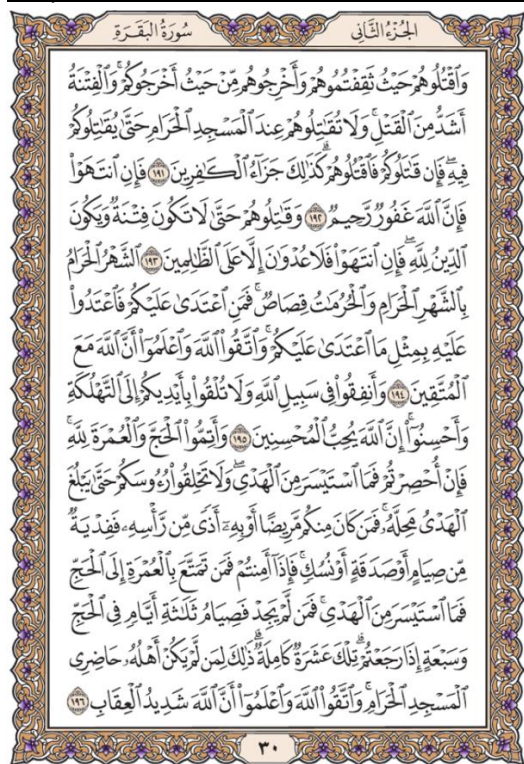 الجُزْءُ الثَّانِي سُورَةُ البَقَرَةِ
وَٱقۡتُلُوهُمۡ حَيۡثُ ثَقِفۡتُمُوهُمۡ وَأَخۡرِجُوهُم مِّنۡ حَيۡثُ أَخۡرَجُوكُمۡۚ وَٱلۡفِتۡنَةُ
أَشَدُّ مِنَ ٱلۡقَتۡلِۚ وَلَا تُقَٰتِلُوهُمۡ عِندَ ٱلۡمَسۡجِدِ ٱلۡحَرَامِ حَتَّىٰ يُقَٰتِلُوكُمۡ
فِيهِۖ فَإِن قَٰتَلُوكُمۡ فَٱقۡتُلُوهُمۡۗ كَذَٰلِكَ جَزَآءُ ٱلۡكَٰفِرِينَ ١٩١ فَإِنِ ٱنتَهَوۡاْ
فَإِنَّ ٱللَّهَ غَفُورٞ رَّحِيمٞ ١٩٢ وَقَٰتِلُوهُمۡ حَتَّىٰ لَا تَكُونَ فِتۡنَةٞ وَيَكُونَ
ٱلدِّينُ لِلَّهِۖ فَإِنِ ٱنتَهَوۡاْ فَلَا عُدۡوَٰنَ إِلَّا عَلَى ٱلظَّٰلِمِينَ ١٩٣ ٱلشَّهۡرُ ٱلۡحَرَامُ
بِٱلشَّهۡرِ ٱلۡحَرَامِ وَٱلۡحُرُمَٰتُ قِصَاصٞۚ فَمَنِ ٱعۡتَدَىٰ عَلَيۡكُمۡ فَٱعۡتَدُواْ
عَلَيۡهِ بِمِثۡلِ مَا ٱعۡتَدَىٰ عَلَيۡكُمۡۚ وَٱتَّقُواْ ٱللَّهَ وَٱعۡلَمُوٓاْ أَنَّ ٱللَّهَ مَعَ
ٱلۡمُتَّقِينَ ١٩٤ وَأَنفِقُواْ فِي سَبِيلِ ٱللَّهِ وَلَا تُلۡقُواْ بِأَيۡدِيكُمۡ إِلَى ٱلتَّهۡلُكَةِ
وَأَحۡسِنُوٓاْۚ إِنَّ ٱللَّهَ يُحِبُّ ٱلۡمُحۡسِنِينَ ١٩٥ وَأَتِمُّواْ ٱلۡحَجَّ وَٱلۡعُمۡرَةَ لِلَّهِۚ
فَإِنۡ أُحۡصِرۡتُمۡ فَمَا ٱسۡتَيۡسَرَ مِنَ ٱلۡهَدۡيِۖ وَلَا تَحۡلِقُواْ رُءُوسَكُمۡ حَتَّىٰ يَبۡلُغَ
ٱلۡهَدۡيُ مَحِلَّهُۥۚ فَمَن كَانَ مِنكُم مَّرِيضًا أَوۡ بِهِۦٓ أَذٗى مِّن رَّأۡسِهِۦ فَفِدۡيَةٞ
مِّن صِيَامٍ أَوۡ صَدَقَةٍ أَوۡ نُسُكٖۚ فَإِذَآ أَمِنتُمۡ فَمَن تَمَتَّعَ بِٱلۡعُمۡرَةِ إِلَى ٱلۡحَجِّ
فَمَا ٱسۡتَيۡسَرَ مِنَ ٱلۡهَدۡيِۚ فَمَن لَّمۡ يَجِدۡ فَصِيَامُ ثَلَٰثَةِ أَيَّامٖ فِي ٱلۡحَجِّ
وَسَبۡعَةٍ إِذَا رَجَعۡتُمۡۗ تِلۡكَ عَشَرَةٞ كَامِلَةٞۗ ذَٰلِكَ لِمَن لَّمۡ يَكُنۡ أَهۡلُهُۥ حَاضِرِي
ٱلۡمَسۡجِدِ ٱلۡحَرَامِۚ وَٱتَّقُواْ ٱللَّهَ وَٱعۡلَمُوٓاْ أَنَّ ٱللَّهَ شَدِيدُ ٱلۡعِقَابِ ١٩٦
٣٠